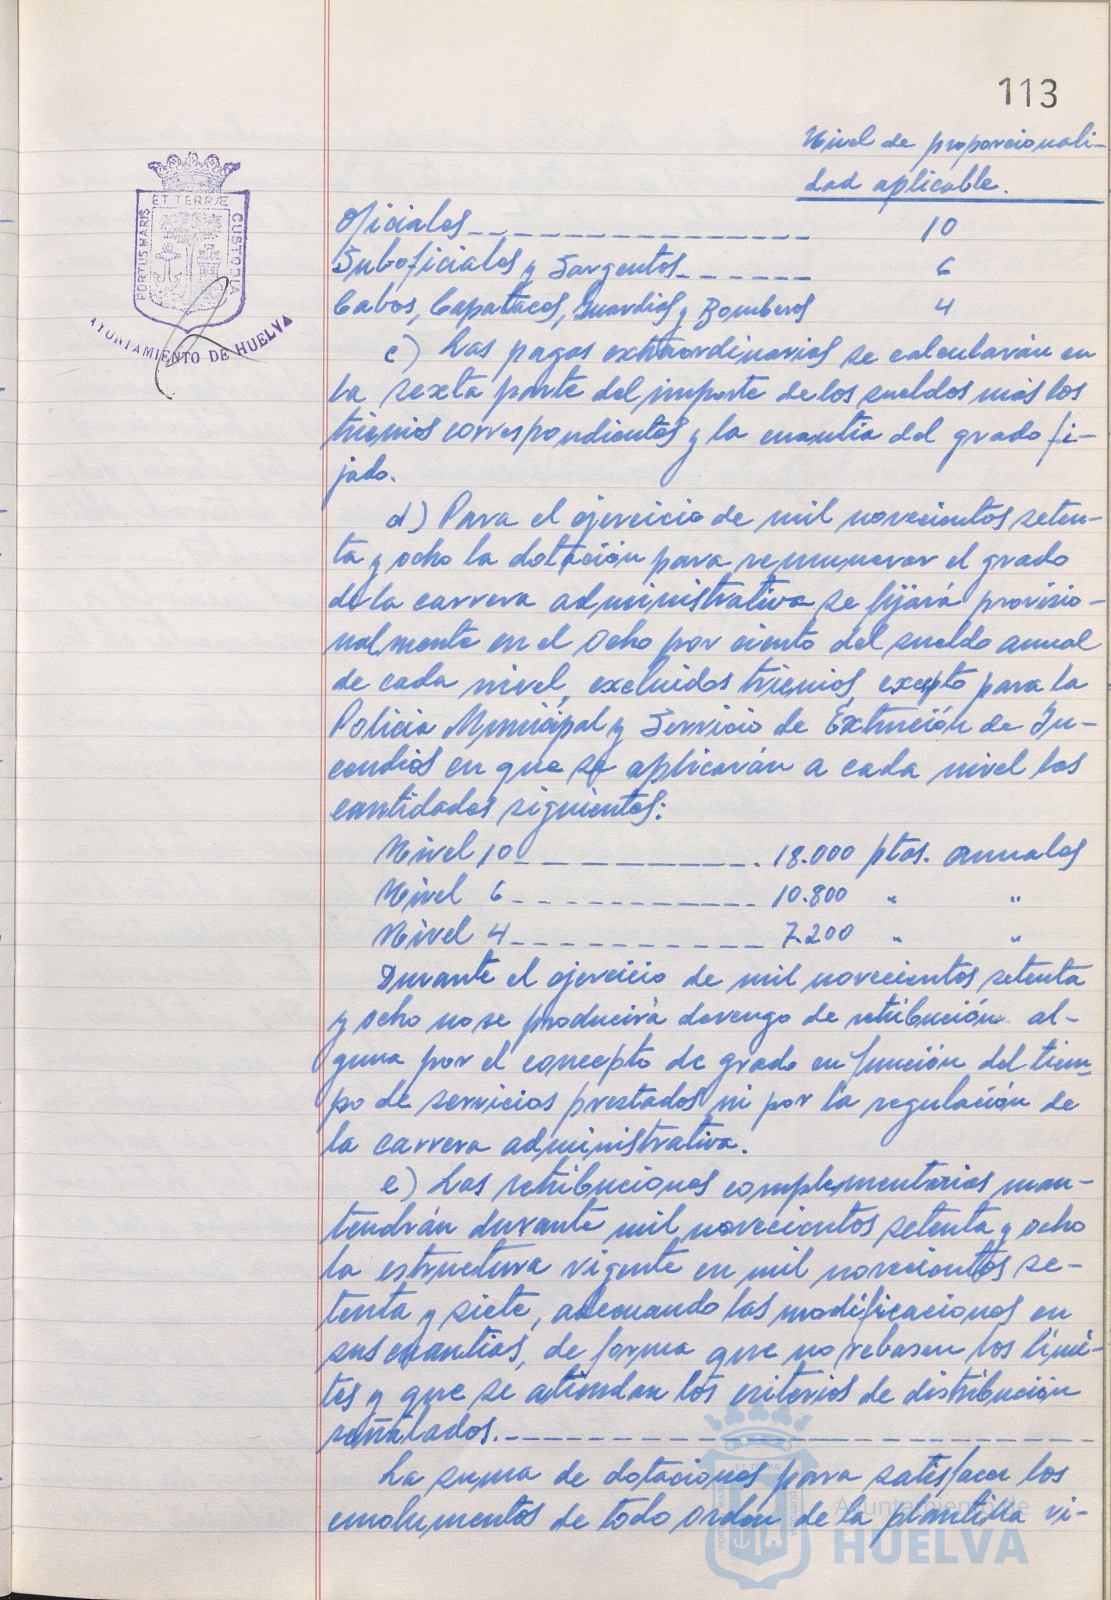 113
Nivel de proporcionali-
dad aplicable.
PORTUS MARIS ET TERRÆ CUSTODIA
AYUNTAMIENTO DE HUELVA
Oficiales_______________ 10
Suboficiales y Sargentos______ 6
Cabos, Capataces, Guardias y Bomberos 4
c) Las pagas extraordinarias se calcularán en
la sexta parte del importe de los sueldos más los
trienios correspondientes y la cuantía del grado fi-
jado.
d) Para el ejercicio de mil novecientos seten-
ta y ocho la dotación para remunerar el grado
de la carrera administrativa se fijará provisio-
nalmente en el ocho por ciento del sueldo anual
de cada nivel, excluidos trienios, excepto para la
Policia Municipal y Servicio de Extinción de In-
cendios en que se aplicarán a cada nivel las
cantidades siguientes:
Nivel 10____________. 18.000 ptas. anuales
Nivel 6____________ 10.800 " "
Nivel 4____________ 7.200 " "
Durante el ejercicio de mil novecientos setenta
y ocho no se producirá devengo de retribución al-
guna por el concepto de grado en función del tiem-
po de servicios prestados ni por la regulación de
la carrera administrativa.
e) Las retribuciones complementarias man-
tendrán durante mil novecientos setenta y ocho
la estructura vigente en mil novecientos se-
tenta y siete, adecuando las modificaciones en
sus cuantías, de forma que no rebasen los lími-
tes y que se atiendan los criterios de distribución
señalados.____________
La suma de dotaciones para satisfacer los
emolumentos de todo orden de la plantilla vi-
Ayuntamiento de
HUELVA